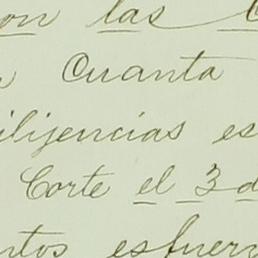 on las
Cuanta
iligencias es
Corte el 3 d
ntos esfuerz